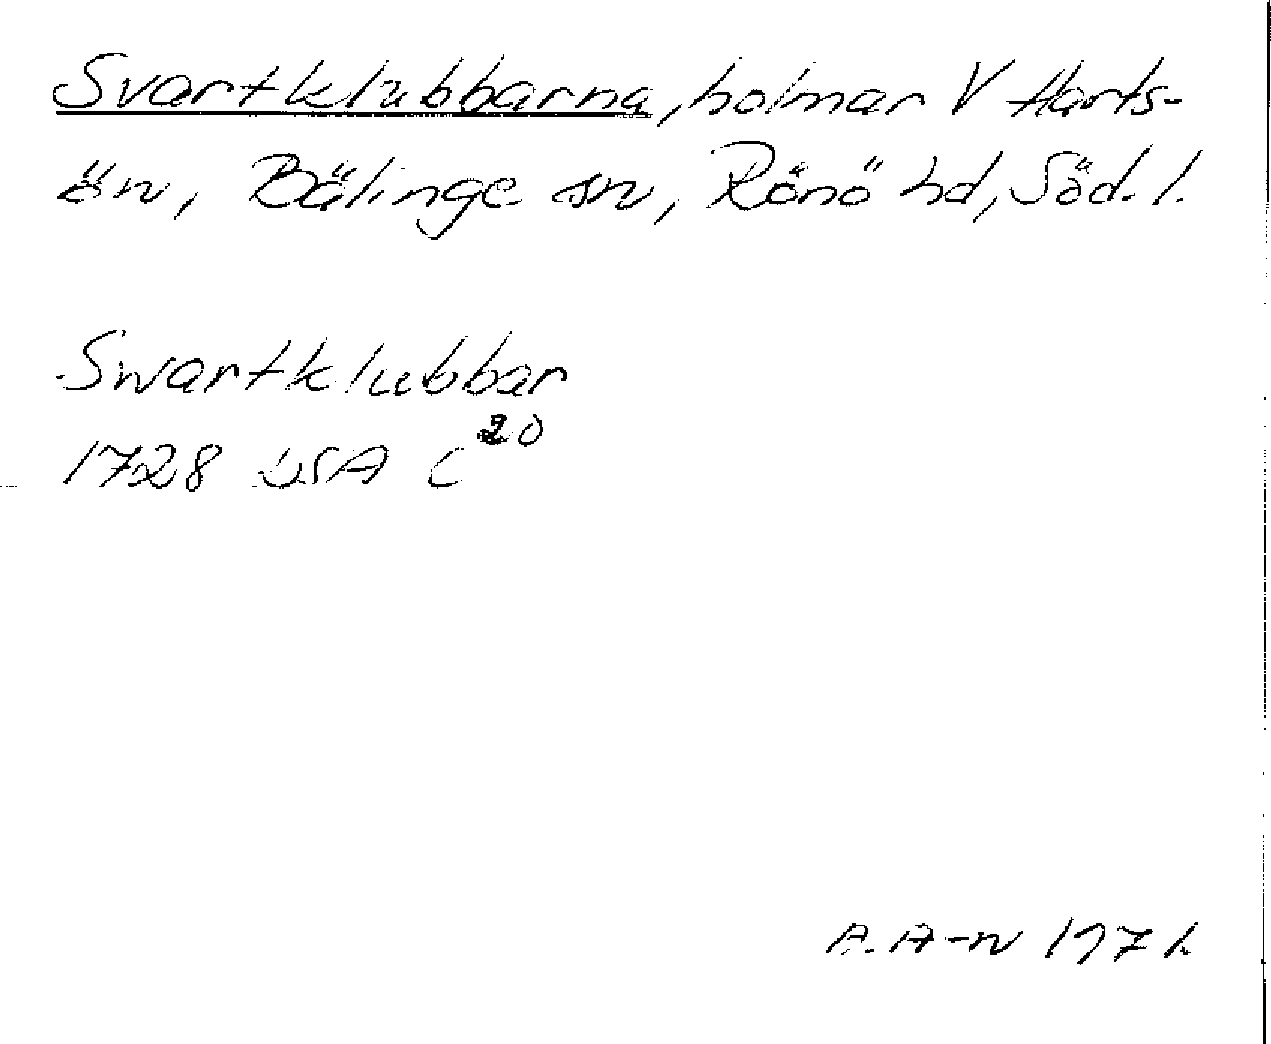 Svartklubbarna, holmar V Harts-
ön, Bälinge sn, Rönö hd, Söd. l.
Swartklubbar
1728 LSA C20
A. A-n 197